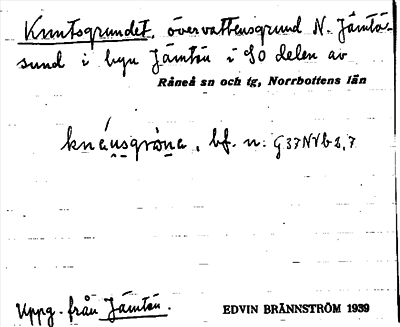 Knutsgrundet, översvattensgrund N. Jämtö-
sund i byn Jämtön i SO delen av
Råneå sn och tg, Norrbottens län
knáu̲s̲grö̲n̲a, bf. n: G37NVb8,7
Uppg. från Jämtön.
EDVIN BRÄNNSTRÖM 1939